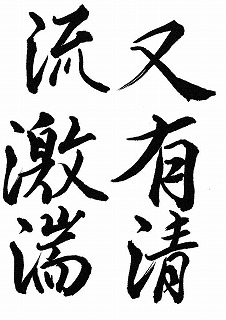 又有清
流激湍